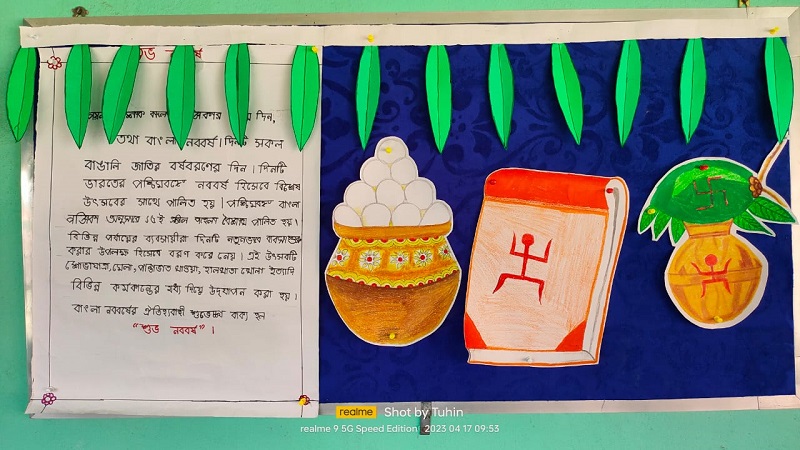 শুভ নববর্ষ
দিন,
তথা বাংলা নববর্ষ। দিনটি সকল
বাঙালি জাতির বর্ষবরণের দিন। দিনটি
ভারতের পশ্চিমবঙ্গে নববর্ষ হিসেবে বিশেষ
উৎসবের সাথে পালিত হয়। পশ্চিমবঙ্গে বাংলা
১৫ই পালিত হয়।
বিভিন্ন পর্যায়ের ব্যবসায়ীরা দিনটি নতুনভাবে
করার উপলক্ষ হিসেবে বরণ করে নেয়। এই উৎসবটি
শোভাযাত্রা, মেলা, পান্তাভাত খাওয়া, হালখাতা খোলা ইত্যাদি
বিভিন্ন কর্মকান্ডের মধ্য দিয়ে উদ্‌যাপন করা হয়।
বাংলা নববর্ষের ঐতিহ্যবাহী শুভেচ্ছা বাক্য হল
"শুভ নববর্ষ"।
realme Shot by Tuhin
realme 9 5G Speed Edition 2023 04 17 09:53